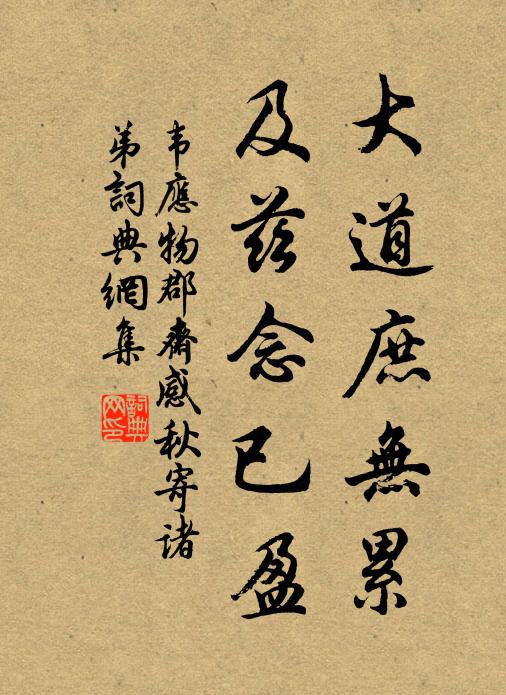 大道庶無累
及茲念已盈
韦應物郡齋感秋寄诸
弟詞典網集
詞典網印